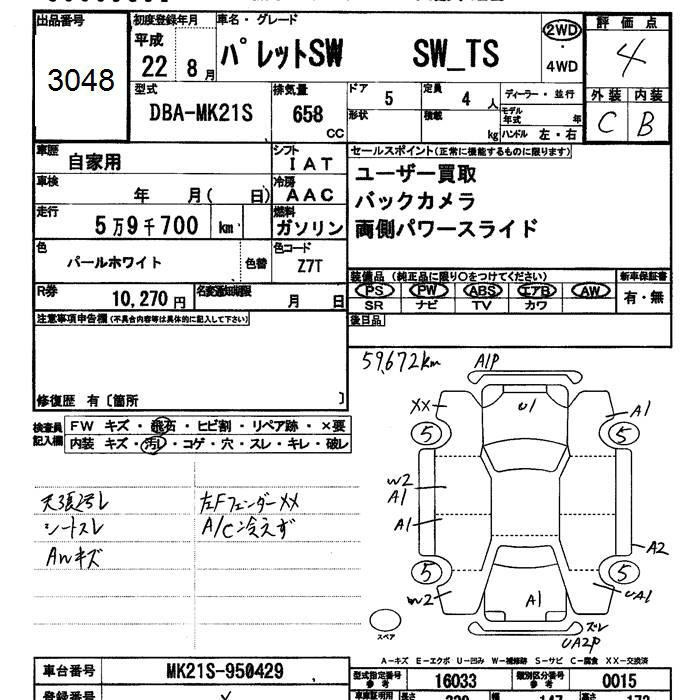 出品番号
3048
初度登録年月
平成
22 8月
車名・グレード
パレットSW SW_TS
2WD
4WD
評価点
4
外装 内装
C B
型式
DBA-MK21S
排気量
658 CC
ドア 5
形状
定員 4 人
積載 kg
ディーラー・並行
モデル年式 年
ハンドル 左・右
車歴 自家用
シフト
IAT
車検 年 月( 日)
冷房
AAC
走行 5万9千700 km
燃料
ガソリン
色 パールホワイト 色替
色コード
Z7T
R券 10,270 円
名変通知期限 月 日
セールスポイント(正常に機能するものに限ります)
ユーザー買取
バックカメラ
両側パワースライド
装備品(純正品に限り○をつけてください) 新車保証書
PS PW ABS エアB AW 有・無
SR ナビ TV カワ
後日品
注意事項申告欄(不具合内容等は具体的に記入して下さい)
修復歴 有〔箇所 〕
検査員記入欄
FW キズ・飛石・ヒビ割・リペア跡・×要
内装 キズ・汚・コゲ・穴・スレ・キレ・破レ
天張汚レ 左Fフェンダー××
シートスレ A/C冷えず
AWキズ
59,672km
A1P
XX U1 A1
5 5
W2
A1
A1 A2
5 5
W2 A1 UA1
スペア
ズレ
UA2P
A-キズ E-エクボ U-凹み W-補修跡 S-サビ C-腐食 XX-交換済
車台番号 MK21S-950429
型式指定番号 参考 16033 類別区分番号 参考 0015
登録番号
長さ 339 幅 147 高さ 173